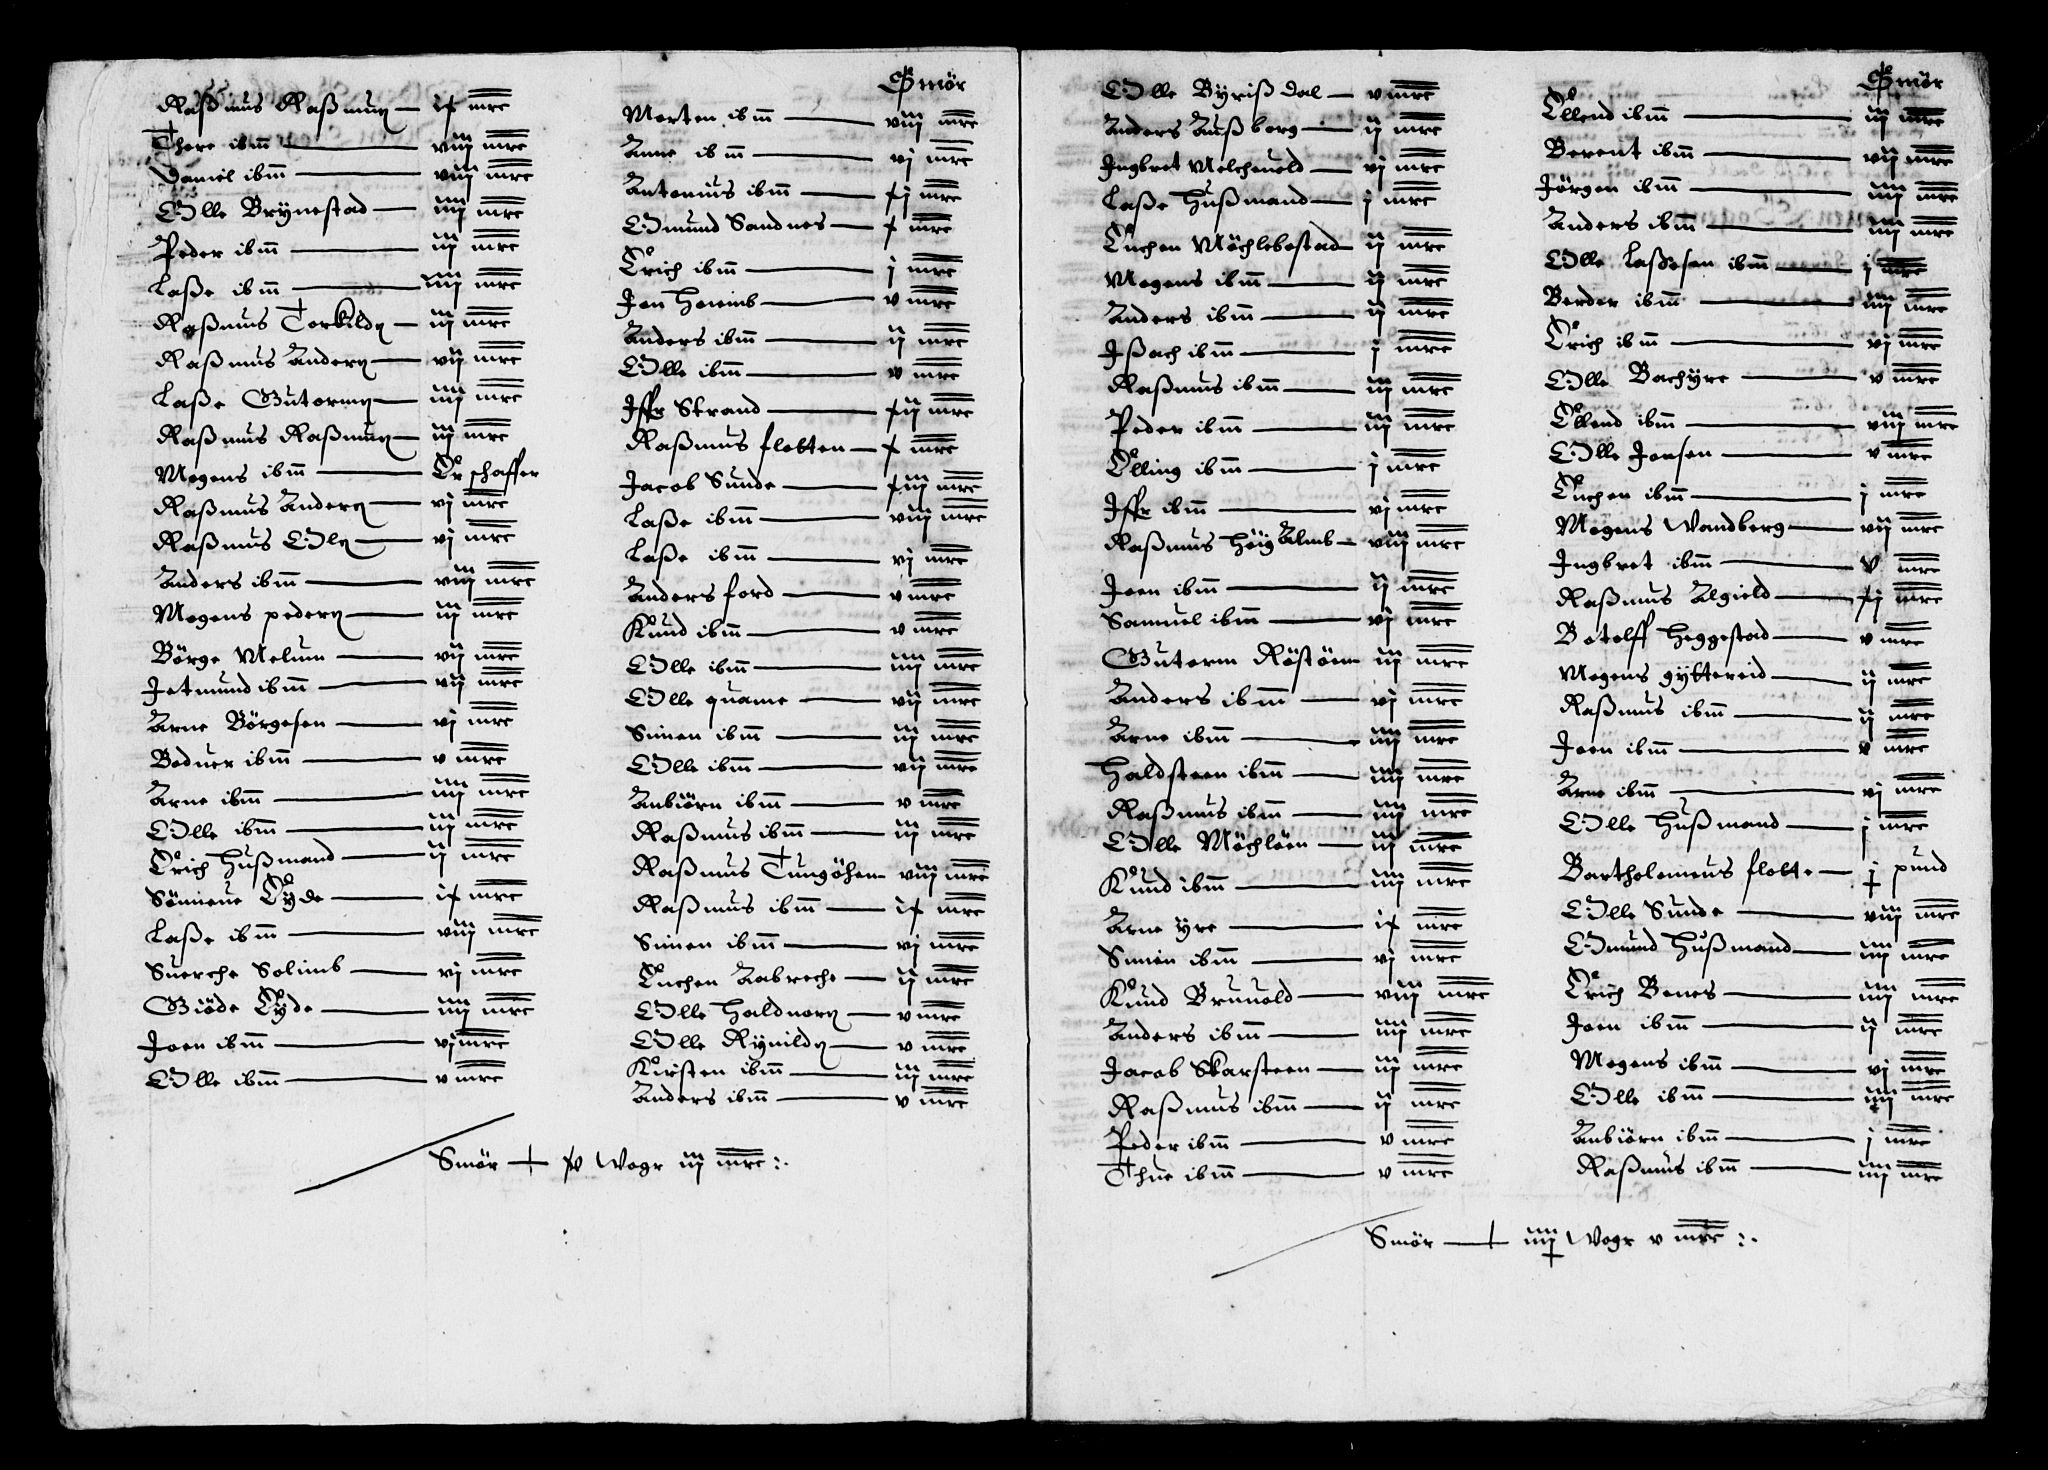 Smör
Raßmus Raßmuß — ix mrc
Thore ibm — viij mrc
Daniel ibm — viij mrc
Olle Brynestad — iiij mrc
Peder ibm — iij mrc
Laße ibm — iiij mrc
Raßmus Torkilds — iij mrc
Raßmus Anders — vij mrc
Laße Gutorms — iiij mrc
Raßmus Raßmus — iij mrc
Mogens ibm — Er schaffer
Raßmus Anders — vj mrc
Raßmus Ols — vj mrc
Anders ibm — viij mrc
Mogens peders — iij mrc
Börge Melum — vij mrc
Jetmund ibm — vij mrc
Arne Börgesen — vj mrc
Boduer ibm — v mrc
Arne ibm — iiij mrc
Olle ibm — iij mrc
Erich Hußmand — ij mrc
Sönneue Eyde — ix mrc
Laße ibm — viij mrc
Suerche Solimb — vj mrc
Giöde Eyde — iiij mrc
Joen ibm — vj mrc
Olle ibm — v mrc
Morten ibm — viij mrc
Anne ibm — vj mrc
Antonius ibm — xj mrc
Omund Sandnes — x mrc
Erich ibm — j mrc
Jon — v mrc
Anders ibm — ij mrc
Olle ibm — v mrc
Iffr Strand — xij mrc
Raßmus flotten — x mrc
Jacob Sunde — xiij mrc
Laße ibm — viij mrc
Laße ibm — vj mrc
Anders ford — v mrc
Knud ibm — v mrc
Olle ibm — iiij mrc
Olle quame — vij mrc
Simen ibm — iij mrc
Olle ibm — vij mrc
Anbiörn ibm — v mrc
Raßmus ibm — iij mrc
Raßmus Tungöhen — viij mrc
Raßmus ibm — ix mrc
Simen ibm — vj mrc
Euchen Aabreche — ij mrc
Olle Halduors — v mrc
Olle Rynilds — v mrc
Kirsten ibm — iij mrc
Anders ibm — v mrc
Smör — xv Wogr iij mrc
Smör
Olle Byrißdal — v mrc
Anders Außborg — ij mrc
Ingbret Melcheuold — vj mrc
Laße Hußmand — j mrc
Euchen Möchlebostad ij mrc
Mogens ibm — ij mrc
Anders ibm — ij mrc
Ißach ibm — j mrc
Raßmus ibm — iij mrc
Peder ibm — iij mrc
Elling ibm — j mrc
Iffr ibm — vj mrc
Raßmus — viij mrc
Joen ibm — ij mrc
Samuel ibm — vj mrc
Gutorm Röstöen iij mrc
Anders ibm — vj mrc
Arne ibm — iiij mrc
Haldsteen ibm — iiij mrc
Raßmus ibm — iiij mrc
Olle Möchlöen — iij mrc
Knud ibm — iiij mrc
Arne yre — ix mrc
Simen ibm — vj mrc
Knud Bruuold — viij mrc
Anders ibm — iiij mrc
Jacob Skarsteen — iij mrc
Raßmus ibm — ij mrc
Peder ibm — v mrc
Thue ibm — v mrc
Ellend ibm — iij mrc
Berent ibm — vij mrc
Jörgen ibm — iiij mrc
Anders ibm — iiij mrc
Olle Laßesen ibm — j mrc
Border ibm — iiij mrc
Erich ibm — vj mrc
Olle Bachyre — v mrc
Ellend ibm — viij mrc
Olle Jensen — v mrc
Euchen ibm — j mrc
Mogens Wandberg — vij mrc
Ingbret ibm — v mrc
Raßmus Algield — xj mrc
Botolff Heggestad — v mrc
Mogens gyttereid — ij mrc
Raßmus ibm — ij mrc
Joen ibm — v mrc
Arne ibm — vj mrc
Olle Hußmand — j mrc
Bartholomeus flotte — j pund
Olle Sunde — viij mrc
Omund Hußmand — iiij mrc
Erich Bones — iiij mrc
Joen ibm — ij mrc
Mogens ibm — vj mrc
Olle ibm — iiij mrc
Anbiörn ibm — j mrc
Raßmus ibm — iiij mrc
Smör — iiij Wogr v mrc